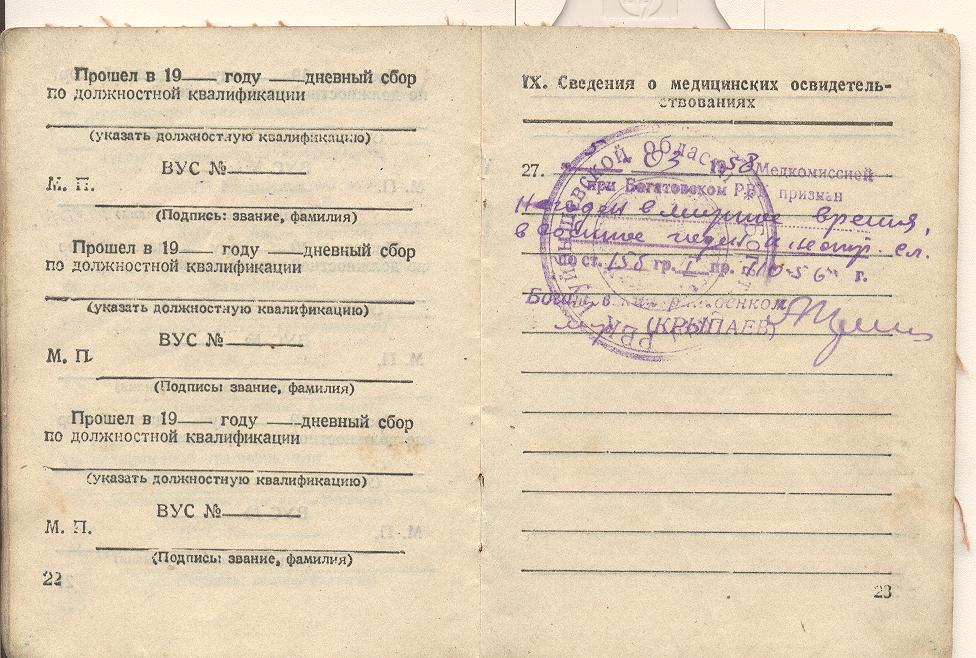 Прошел в 19___ году ___дневный сбор
по должностной квалификации
(указать должностную квалификацию)
ВУС №
М. П.
(Подпись: звание, фамилия)
Прошел в 19___ году ___дневный сбор
по должностной квалификации
(указать должностную квалификацию)
ВУС №
М. П.
(Подпись: звание, фамилия)
Прошел в 19___ году ___дневный сбор
по должностной квалификации
(указать должностную квалификацию)
ВУС №
М. П.
(Подпись: звание, фамилия)
22
IX. Сведения о медицинских освидетель-
ствованиях
27. 03 1958 Медкомиссией
при Богатовском РВК признан
в мирное время,
в военное
по ст. 15б гр. I пр.
(КРЫПАЕВ)
Куйбышевской Области
23